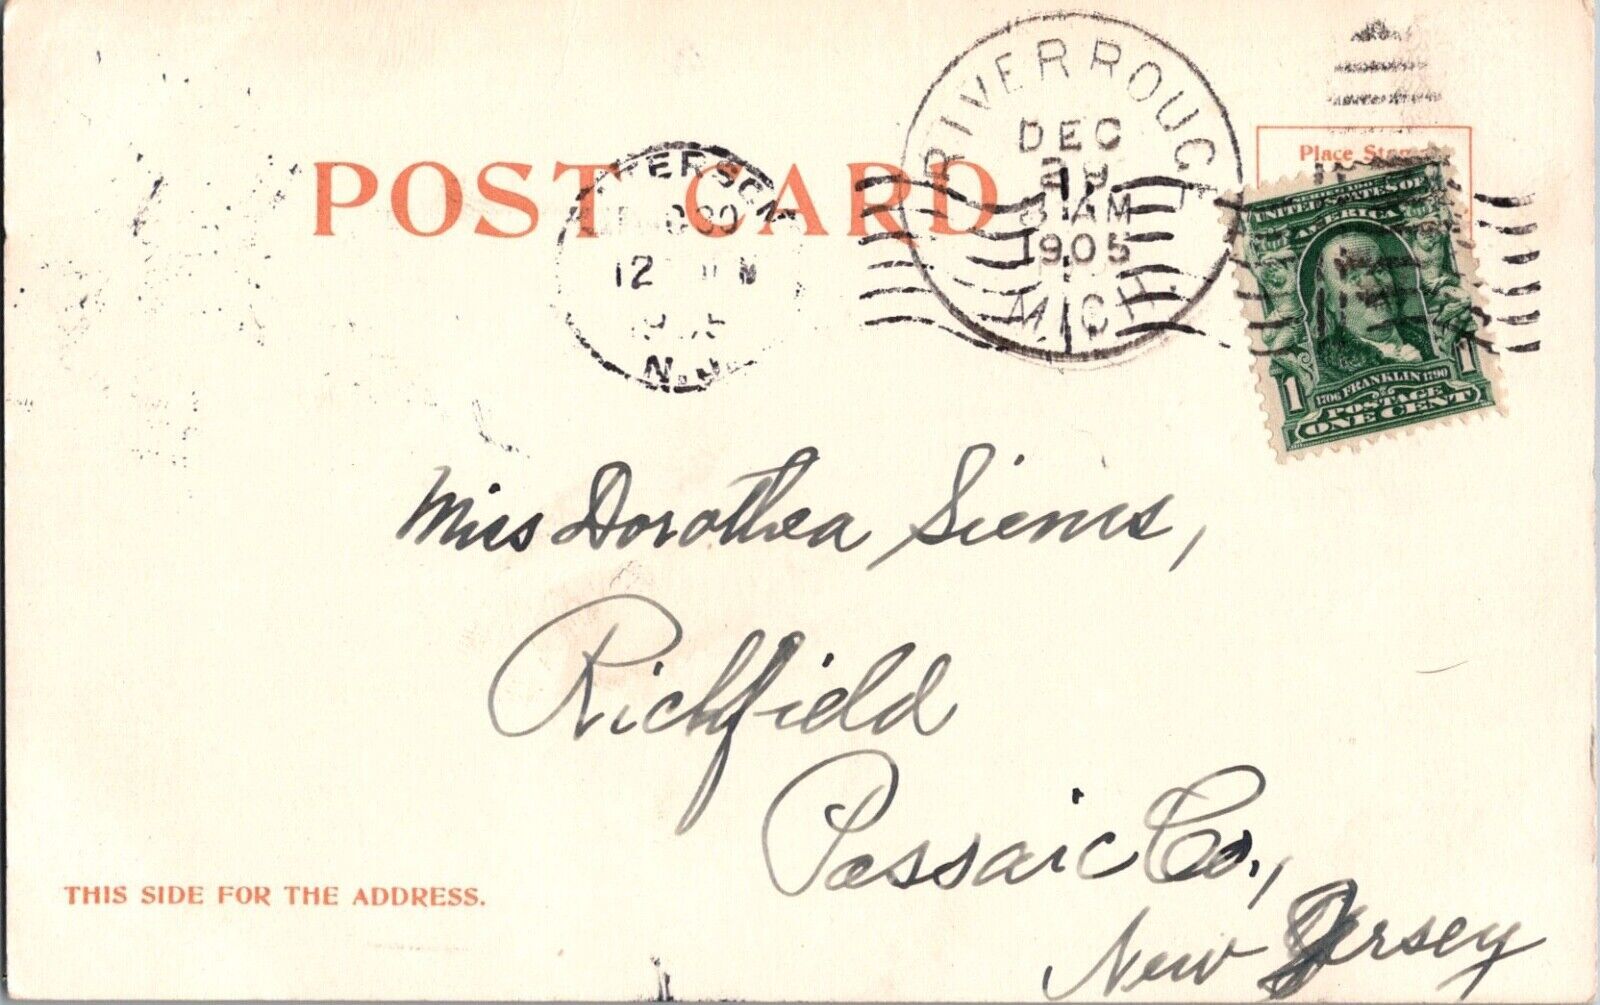 POST CARD
RIVER ROUGE
DEC
29
8 AM
1905
MICH.
12
N.J.
Place
UNITED STATES OF
AMERICA
1 1
1706 FRANKLIN 1790
POSTAGE
ONE CENT
Miss Dorothea Siems,
Richfield
Passaic Co.,
New Jersey
THIS SIDE FOR THE ADDRESS.